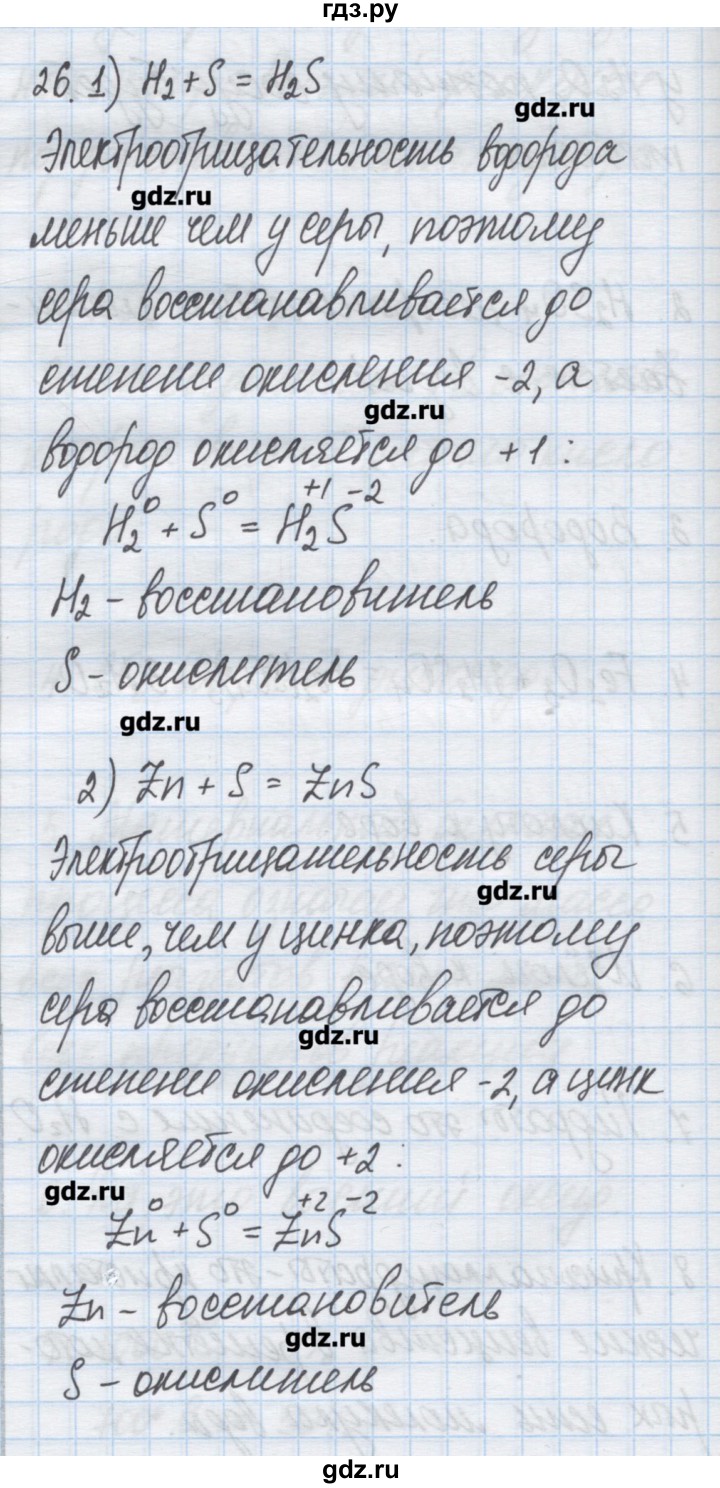 гдз.ру
26. 1) H₂ + S = H₂S
gdz.ru
Электроотрицательность водорода
gdz.ru
меньше чем у серы, поэтому
сера восстанавливается до
степени окисления -2, а
gdz.ru
водород окисляется до +1 :
H₂⁰ + S⁰ = H₂⁺¹S⁻²
H₂ - восстановитель
S - окислитель
gdz.ru
2) Zn + S = ZnS
Электроотрицательность серы
gdz.ru
выше, чем у цинка, поэтому
сера восстанавливается до
gdz.ru
степени окисления -2, а цинк
окисляется до +2 :
gdz.ru
Zn⁰ + S⁰ = Zn⁺²S⁻²
Zn - восстановитель
gdz.ru
S - окислитель
gdz.ru